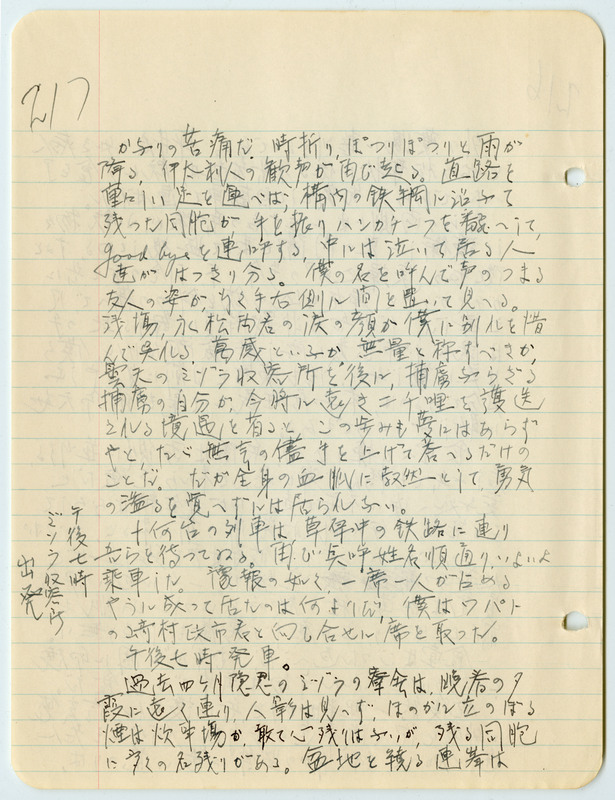 217
かりの苦痛だ、時折り、ぽつりぽつりと雨が
降る、伊太利人の歓声が再び起る。直路を
重い足を運べば、構内の鉄網に沿ふて
残った同胞が手を振りハンカチーフを飜へして、
good byeを連呼する、中には泣いて居る人
達がはっきり分る。僕の名を呼んで声のつまる
友人の姿が、行く手右側に間を置いて見へる。
浅場、永松両君の涙の顔が僕に別れを惜
んで呉れる、萬感といふか、無量と称すべきか、
曇天のミゾラ収容所を後に、捕虜ならざる
捕虜の自分が、今将に遠き二千哩を護送
される境遇を省ると、この歩みも夢にはあらず
やと、たゞ無言の儘手を上げて答へるだけの
ことだ。だが全身の血脈に毅然として、勇気
の溢るを覚へずには居られない。
十何台の列車は草原中の鉄路に連り
吾らを待つてゐる。再び点呼姓名順通り、いよいよ
乗車した。豫報の如く、一席一人が占める
やうに成って居たのは何よりだ、僕はワパト
の崎村政市君と向ひ合せに席を取った。
午後七時発車。
過去四ヶ月隠忍のミゾラの寮舎は、晩春の夕
霞に遠く連り、人影は見へず、ほのかに立のぼる
煙は炊事場か、敢て心残りはないが、残る同胞
に多くの名残りがある。盆地を繞る連峯は
午後七時
ミゾラ収容所
出発